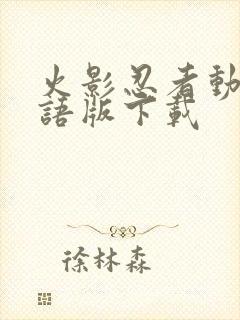 火影忍者動
語版下載
徐林森